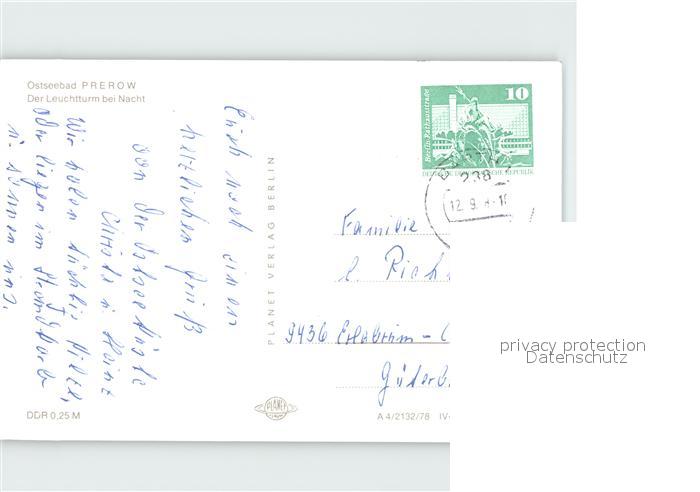 Ostseebad PREROW
Der Leuchtturm bei Nacht
Euch noch einen
herzlichen Gruß
von der Ostseeküste
u. Heinz
Wir holen tüchtig
oder liegen im Strandkorb
u. sonnen uns.
PLANET VERLAG BERLIN
10
Berlin, Rathausstraße
DEUTSCHE DEMOKRATISCHE REPUBLIK
238
12. 9.
Familie
9436
DDR 0,25 M
PLANET
A 4/2132/78 IV-
privacy protection
Datenschutz